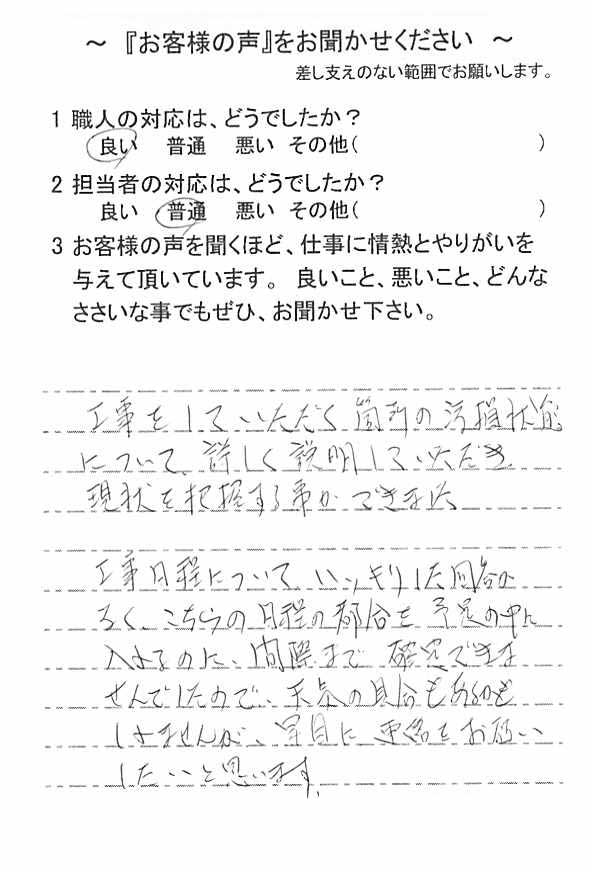 ～ 『お客様の声』をお聞かせください ～
差し支えのない範囲でお願いします。
1 職人の対応は、どうでしたか？
良い 普通 悪い その他( )
2 担当者の対応は、どうでしたか？
良い 普通 悪い その他( )
3 お客様の声を聞くほど、仕事に情熱とやりがいを
与えて頂いています。 良いこと、悪いこと、どんな
ささいな事でもぜひ、お聞かせ下さい。
工事をしていただく箇所の汚損状態
について、詳しく説明していただき
現状を把握する事ができました
工事日程について、ハッキリした回答が
なく、こちらの日程の都合を予定の中に
入れるのに、間際まで確定できま
せんでしたので、天気の具合もあるかも
しれませんが、早目に連絡をお願い
したいと思います。